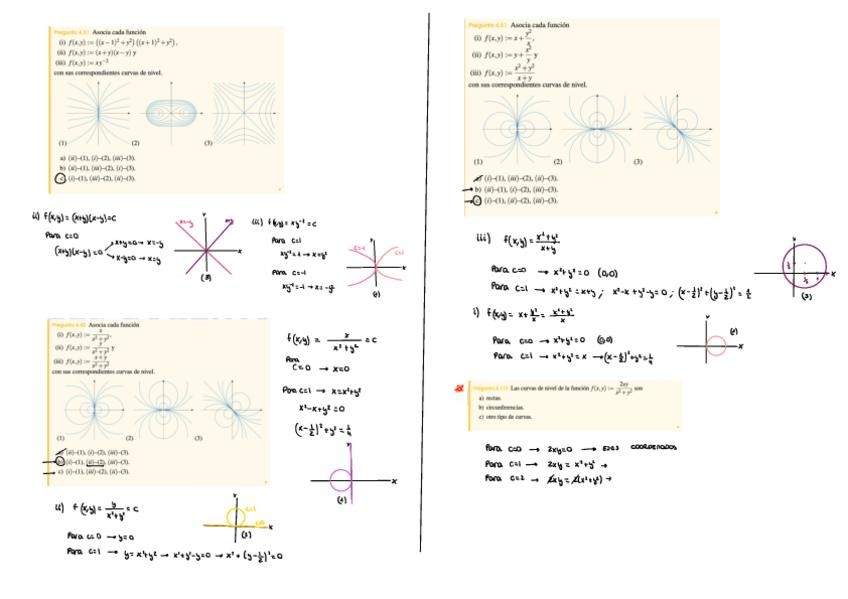 Pregunta 4.31 Asocia cada función
(i) f(x,y) := ((x−1)²+y²)((x+1)²+y²),
(ii) f(x,y) := (x+y)(x−y) y
(iii) f(x,y) := xy⁻²
con sus correspondientes curvas de nivel.
(1) (2) (3)
a) (ii)–(1), (i)–(2), (iii)–(3).
b) (ii)–(1), (iii)–(2), (i)–(3).
c) (i)–(1), (iii)–(2), (ii)–(3).
ii) f(x,y) = (x+y)(x-y)=C
Para C=0
(x+y)(x-y)=0
x+y=0 → x=-y
x-y=0 → x=y
x=-y
y
x
(3)
(iii) f(x,y) = xy⁻² = C
Para C=1
xy⁻²=1 → x=y²
Para C=-1
xy⁻²=-1 → x=-y²
C=-1
C=1
Asocia cada función
(i) f(x,y) := x/x²+y²,
(ii) f(x,y) := y/x²+y² y
(iii) f(x,y) := x+y/x²+y²
con sus correspondientes curvas de nivel.
(1) (2) (3)
a) (ii)–(1), (i)–(2), (iii)–(3).
b) (i)–(1), (ii)–(2), (iii)–(3).
c) (i)–(1), (iii)–(2), (ii)–(3).
f(x,y) = x/x²+y² = C
Para
C=0 → x=0
Para C=1 → x=x²+y²
x²-x+y²=0
(x-1/2)²+y²=1/4
x
ii) f(x,y) = y/x²+y² = C
Para C=0 → y=0
Para C=1 → y=x²+y² → x²+y²-y=0 → x²+(y-1/2)²=0
C=1
x
Asocia cada función
(i) f(x,y) := x+y²/x,
(ii) f(x,y) := y+x²/y y
(iii) f(x,y) := x²+y²/x+y
con sus correspondientes curvas de nivel.
(1) (2) (3)
a) (i)–(1), (iii)–(2), (ii)–(3).
b) (ii)–(1), (i)–(2), (iii)–(3).
c) (i)–(1), (ii)–(2), (iii)–(3).
iii) f(x,y) = x²+y²/x+y
Para C=0 → x²+y²=0 (0,0)
Para C=1 → x²+y²=x+y ; x²-x+y²-y=0 ; (x-1/2)²+(y-1/2)²=1/2
y
x
(3)
i) f(x,y) = x+y²/x = x²+y²/x
Para C=0 → x²+y²=0 (0,0)
Para C=1 → x²+y²=x → (x-1/2)²+y²=1/4
y
x
Las curvas de nivel de la función f(x,y) := 2xy/x²+y² son
a) rectas.
b) circunferencias.
c) otro tipo de curvas.
Para C=0 → 2xy=0 → EJES COORDENADOS
Para C=1 → 2xy = x²+y² →
Para C=2 → 2xy = 2(x²+y²) →